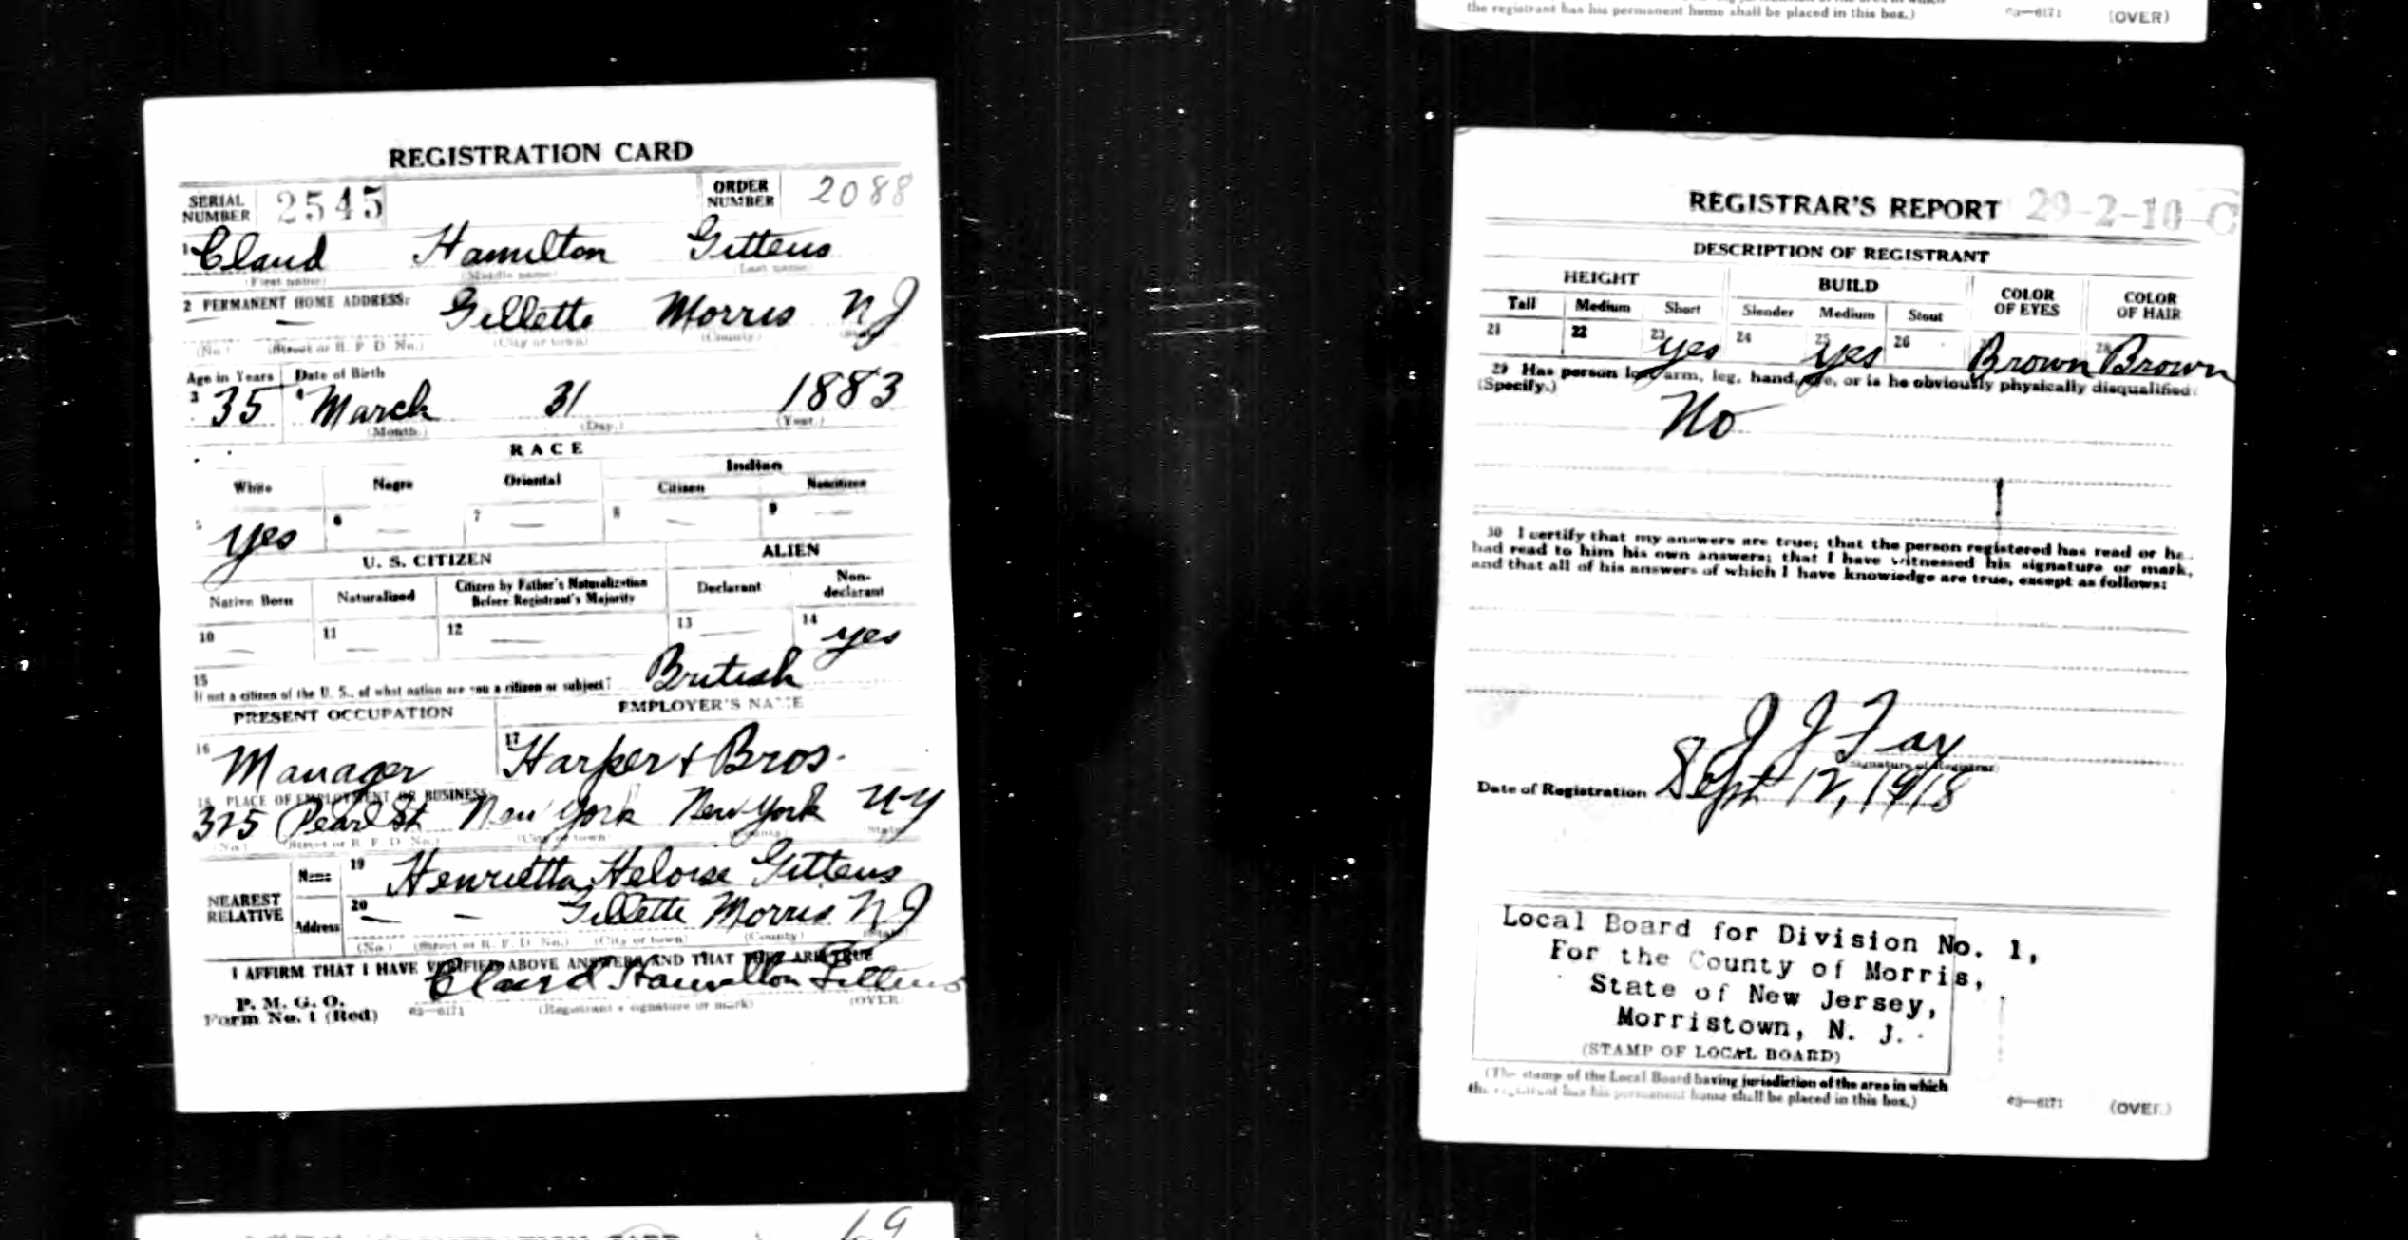 the registrant has his permanent home shall be placed in this box.) 63—6171 (OVER)
REGISTRATION CARD
SERIAL NUMBER 2545 ORDER NUMBER 2088
1 Claud Hamilton Gittens
(First name) (Middle name) (Last name)
2 PERMANENT HOME ADDRESS:
Gillette Morris NJ
(No.) (Street or R. F. D. No.) (City or town) (County)
Age in Years Date of Birth
3 35 4 March 31 1883
(Month.) (Day.) (Year.)
RACE
White Negro Oriental Indian
Citizen Noncitizen
5 Yes 6 — 7 — 8 — 9 —
U. S. CITIZEN ALIEN
Native Born Naturalized Citizen by Father's Naturalization Before Registrant's Majority Declarant Non-declarant
10 — 11 — 12 — 13 — 14 yes
15 If not a citizen of the U. S., of what nation are you a citizen or subject? British
PRESENT OCCUPATION EMPLOYER'S NAME
16 Manager 17 Harper & Bros.
18 PLACE OF EMPLOYMENT OR BUSINESS:
325 Pearl St. New York New York N-Y
(No.) (Street or R. F. D. No.) (City or town) (County) (State)
NEAREST RELATIVE
Name 19 Henrietta Heloise Gittens
Address 20 — — Gillette Morris NJ
(No.) (Street or R. F. D. No.) (City or town) (County) (State)
I AFFIRM THAT I HAVE VERIFIED ABOVE ANSWERS AND THAT THEY ARE TRUE
P. M. G. O.
Form No. 1 (Red) 63—6171 Claud Hamilton Gittens
(Registrant's signature or mark) (OVER)
REGISTRAR'S REPORT 29-2-10-C
DESCRIPTION OF REGISTRANT
HEIGHT BUILD COLOR OF EYES COLOR OF HAIR
Tall Medium Short Slender Medium Stout
21 22 23 yes 24 25 yes 26 Brown 28 Brown
29 Has person lost arm, leg, hand, eye, or is he obviously physically disqualified?
(Specify.)
No
30 I certify that my answers are true; that the person registered has read or has
had read to him his own answers; that I have witnessed his signature or mark,
and that all of his answers of which I have knowledge are true, except as follows:
J J Fay
(Signature of Registrar)
Date of Registration Sept 12, 1918
Local Board for Division No. 1,
For the County of Morris,
State of New Jersey,
Morristown, N. J.
(STAMP OF LOCAL BOARD)
(The stamp of the Local Board having jurisdiction of the area in which
the registrant has his permanent home shall be placed in this box.) 63—6171 (OVER)
REGISTRATION CARD